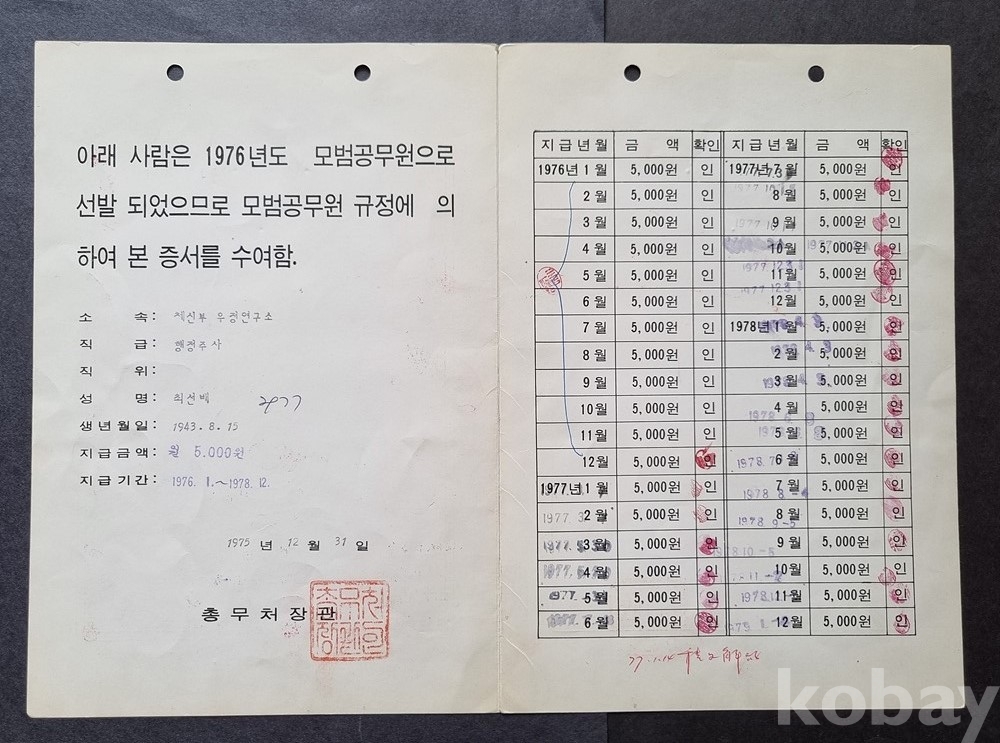 아래 사람은 1976년도 모범공무원으로
선발 되었으므로 모범공무원 규정에 의
하여 본 증서를 수여함.
소 속: 체신부 우정연구소
직 급: 행정주사
직 위:
성 명: 최선배
생년월일: 1943. 8. 15
지급금액: 월 5.000원
지급기간: 1976. 1.~1978. 12.
1975 년 12 월 31 일
총무처장관
지급년월 금 액 확인 지급년월 금 액 확인
1976년 1월 5,000원 인 1977년 7월 5,000원 인
2월 5,000원 인 8월 5,000원 인
3월 5,000원 인 9월 5,000원 인
4월 5,000원 인 10월 5,000원 인
5월 5,000원 인 11월 5,000원 인
6월 5,000원 인 12월 5,000원 인
7월 5,000원 인 1978년 1월 5,000원 인
8월 5,000원 인 2월 5,000원 인
9월 5,000원 인 3월 5,000원 인
10월 5,000원 인 4월 5,000원 인
11월 5,000원 인 5월 5,000원 인
12월 5,000원 인 1978. 7 6월 5,000원 인
1977년 1월 5,000원 인 1978 8 -4 7월 5,000원 인
1977 3 2월 5,000원 인 1978 9 -5 8월 5,000원 인
3월 5,000원 인 1978 10 -5 9월 5,000원 인
4월 5,000원 인 10월 5,000원 인
5월 5,000원 인 11월 5,000원 인
6월 5,000원 인 12월 5,000원 인
kobay